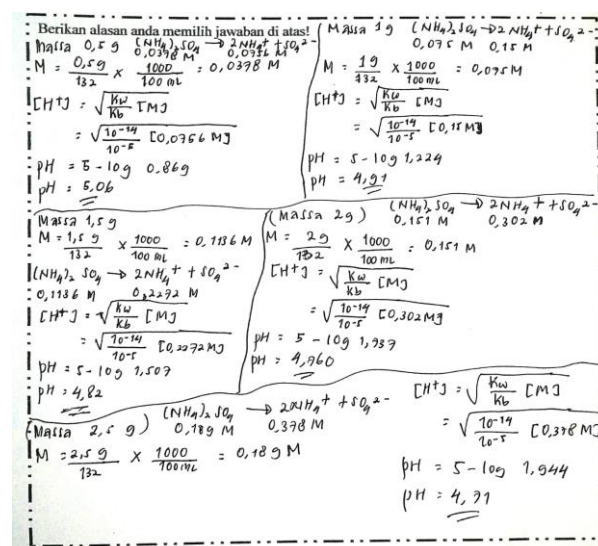 Berikan alasan anda memilih jawaban di atas!
Massa 0,5 g (NH₄)₂SO₄ → 2NH₄⁺ + SO₄²⁻
0,0378 M 0,0756 M
M = 0,5 g / 132 × 1000 / 100 mL = 0,0378 M
[H⁺] = √ Kw / Kb [M]
= √ 10⁻¹⁴ / 10⁻⁵ [0,0756 M]
pH = 5 - log 0,869
pH = 5,06
Massa 1 g (NH₄)₂SO₄ → 2 NH₄⁺ + SO₄²⁻
0,075 M 0,15 M
M = 1 g / 132 × 1000 / 100 mL = 0,075 M
[H⁺] = √ Kw / Kb [M]
= √ 10⁻¹⁴ / 10⁻⁵ [0,15 M]
pH = 5 - log 1,224
pH = 4,91
Massa 1,5 g
M = 1,5 g / 132 × 1000 / 100 mL = 0,1136 M
(NH₄)₂ SO₄ → 2NH₄⁺ + SO₄²⁻
0,1136 M 0,2272 M
[H⁺] = √ Kw / Kb [M]
= √ 10⁻¹⁴ / 10⁻⁵ [0,2272 M]
pH = 5 - log 1,507
pH = 4,82
(Massa 2 g) (NH₄)₂ SO₄ → 2NH₄⁺ + SO₄²⁻
0,151 M 0,302 M
M = 2 g / 132 × 1000 / 100 mL = 0,151 M
[H⁺] = √ Kw / Kb [M]
= √ 10⁻¹⁴ / 10⁻⁵ [0,302 M]
pH = 5 - log 1,737
pH = 4,760
(Massa 2,5 g) (NH₄)₂ SO₄ → 2NH₄⁺ + SO₄²⁻
0,189 M 0,378 M
M = 2,5 g / 132 × 1000 / 100 mL = 0,189 M
[H⁺] = √ Kw / Kb [M]
= √ 10⁻¹⁴ / 10⁻⁵ [0,378 M]
pH = 5 - log 1,944
pH = 4,71